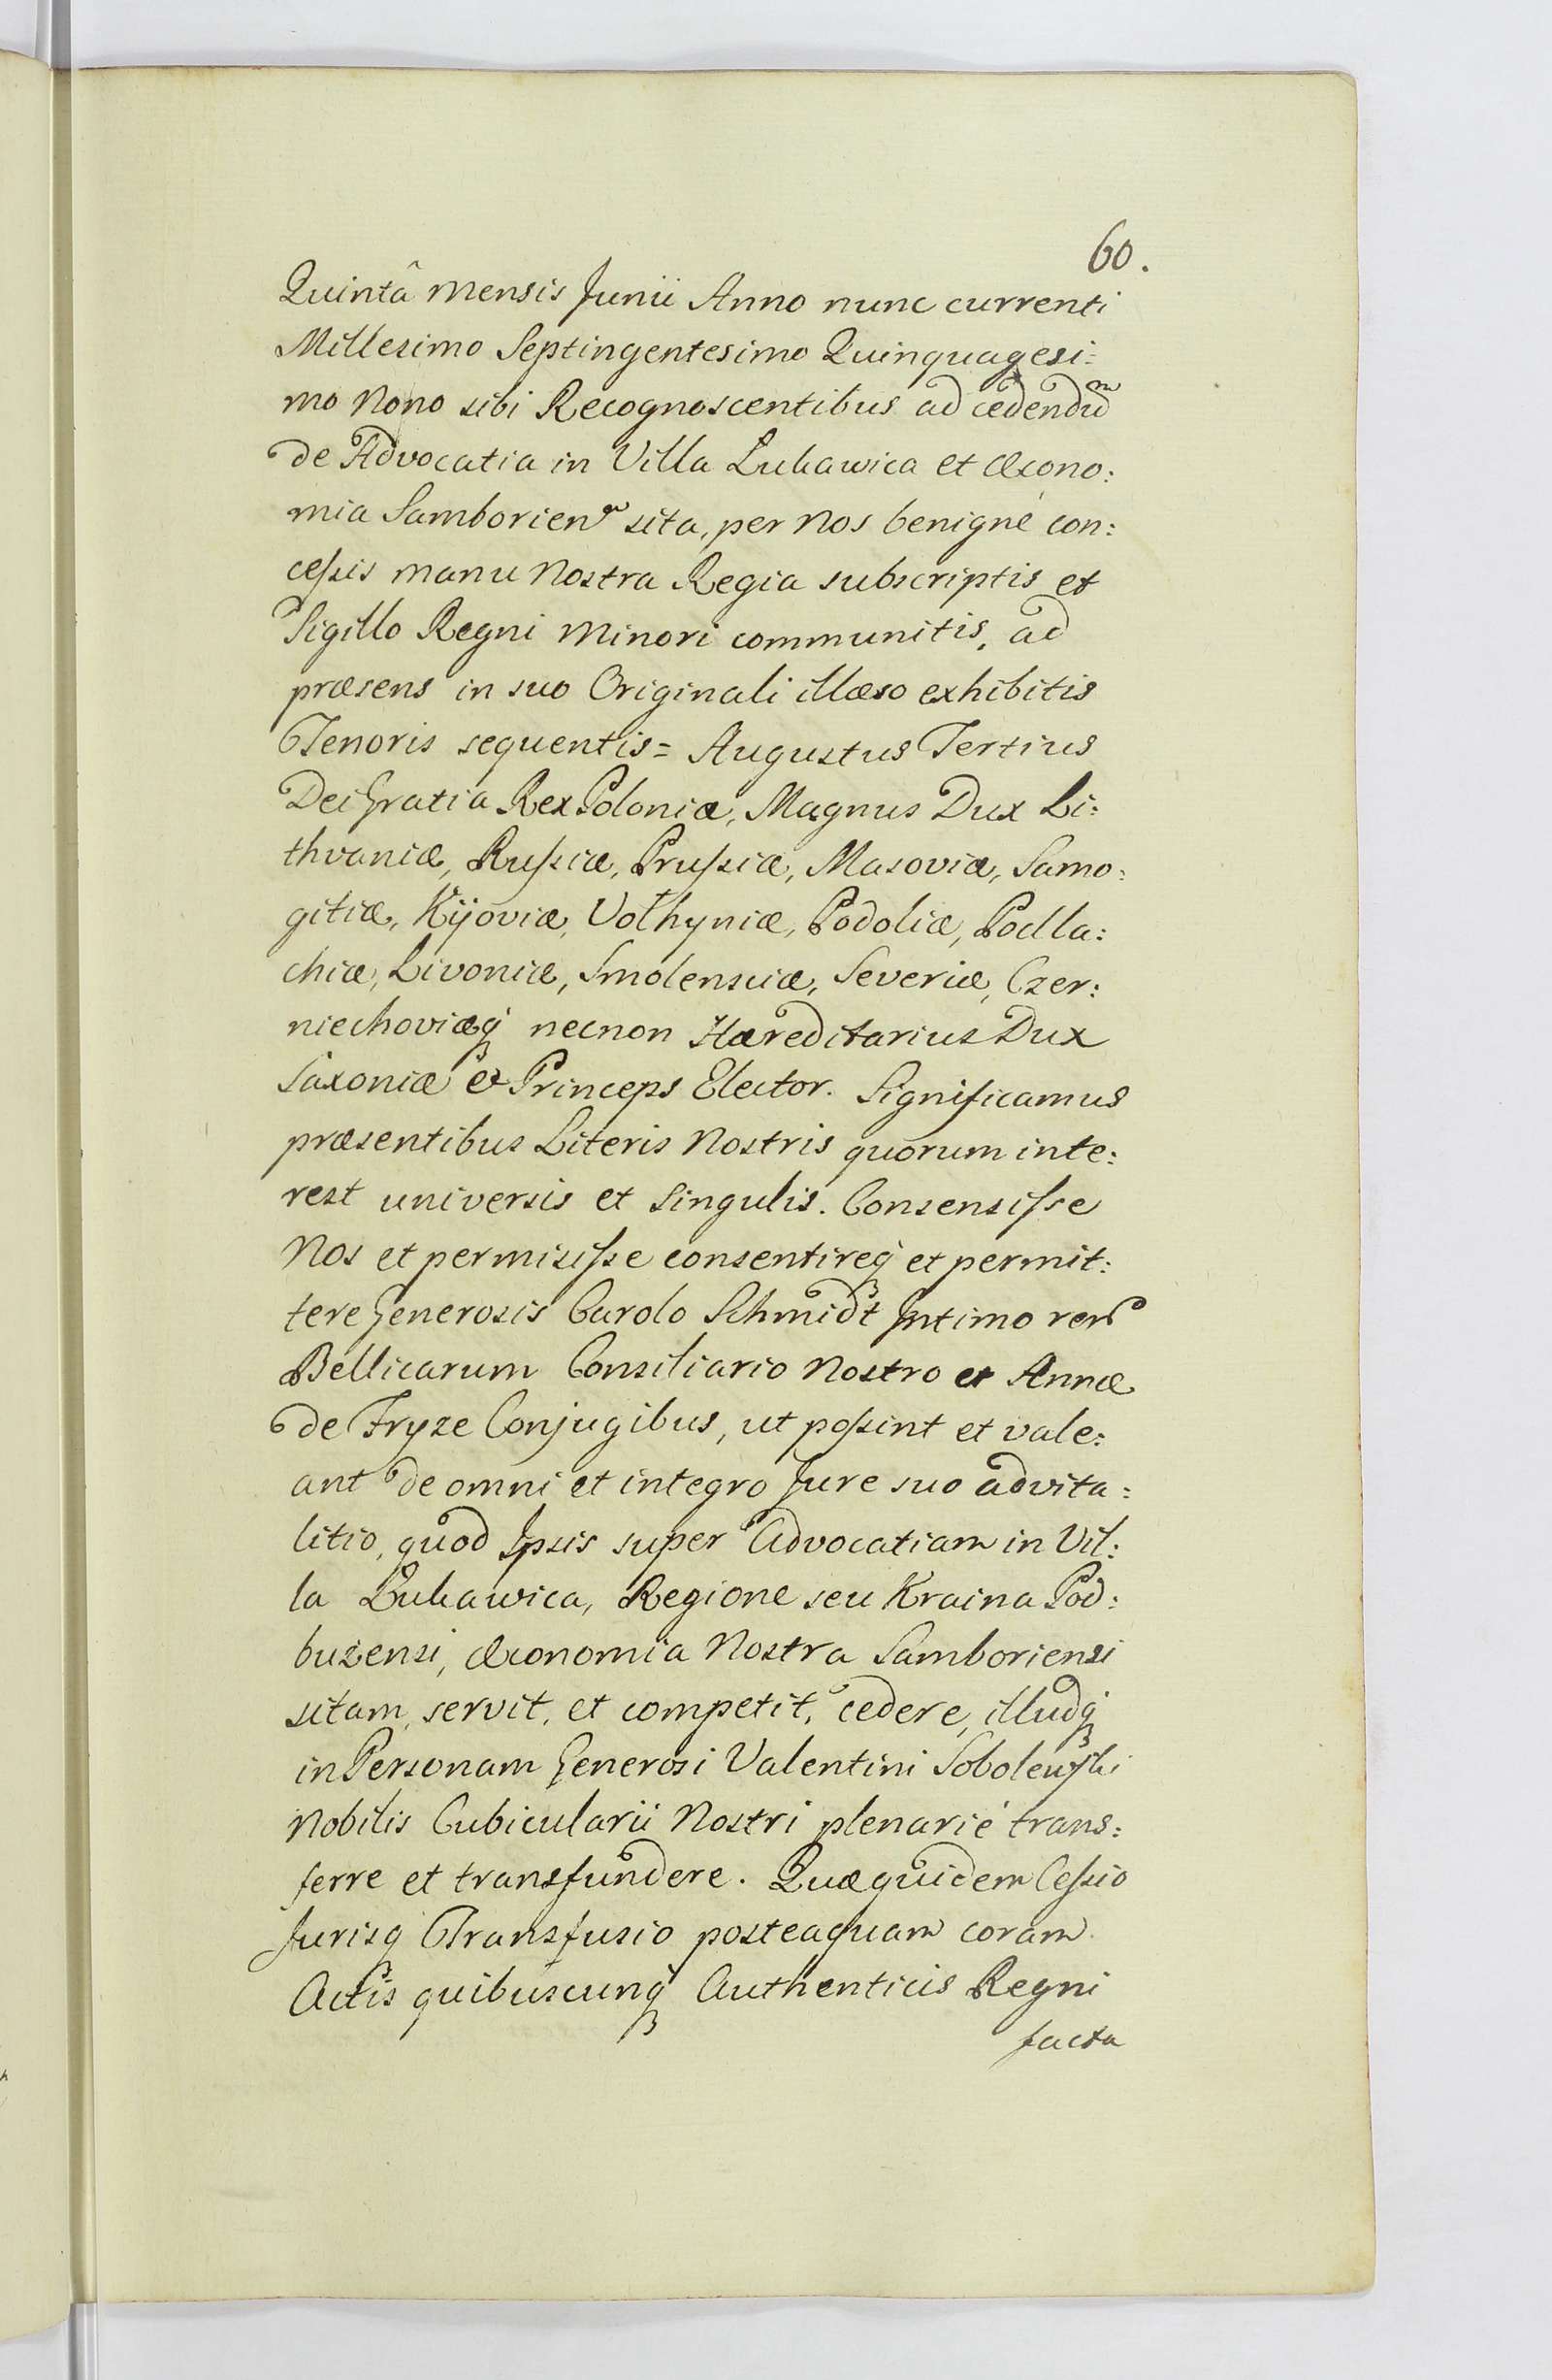 60.
Quintâ mensis Junii Anno nunc currenti
Millesimo Septingentesimo Quinquagesi:
mo Nono sibi Recognoscentibus ad cedendũ
de Advocatia in Villa Lukawica et Œcono:
mia Samborien sita, per Nos benigné con:
ceſsis manu Nostra Regia subscriptis et
Sigillo Regni Minori communitis, ad
præsens in suo Originali illæso exhibitis
Tenoris sequentis = Augustus Tertius
Dei Gratia Rex Poloniæ, Magnus Dux Li:
thvaniæ, Ruſsiæ, Pruſsiæ, Masoviæ, Samo:
gitiæ, Kijoviæ, Volhyniæ, Podoliæ, Podla:
chiæ, Livoniæ, Smolensciæ, Severiæ, Czer:
niechoviæq́ necnon Hæreditarius Dux
Saxoniæ & Princeps Elector. Significamus
præsentibus Literis Nostris quorum inte:
rest universis et singulis. Consensiſse
Nos et permisiſse consentireq́ et permit:
tere Generosis Carolo Schmidt Intimo rerũ
Bellicarum Consiliario Nostro et Annæ
de Fryze Conjugibus, ut poſsint et vale:
ant de omni et integro Jure suo advita:
litio, quod Ipsis super Advocatiam in Vil:
la Lukawica, Regione seu Kraina Pod:
buzensi, Œconomia Nostra Samboriensi
sitam, servit, et competit, cedere, illudq́
in Personam Generosi Valentini Sobolewſki
Nobilis Cubicularii Nostri plenarié trans:
ferre et transfundere. Quæquidem Ceſsio
Jurisq́ Transfusio posteaquam coram
Actis quibuscunq́ Authenticis Regni
facta